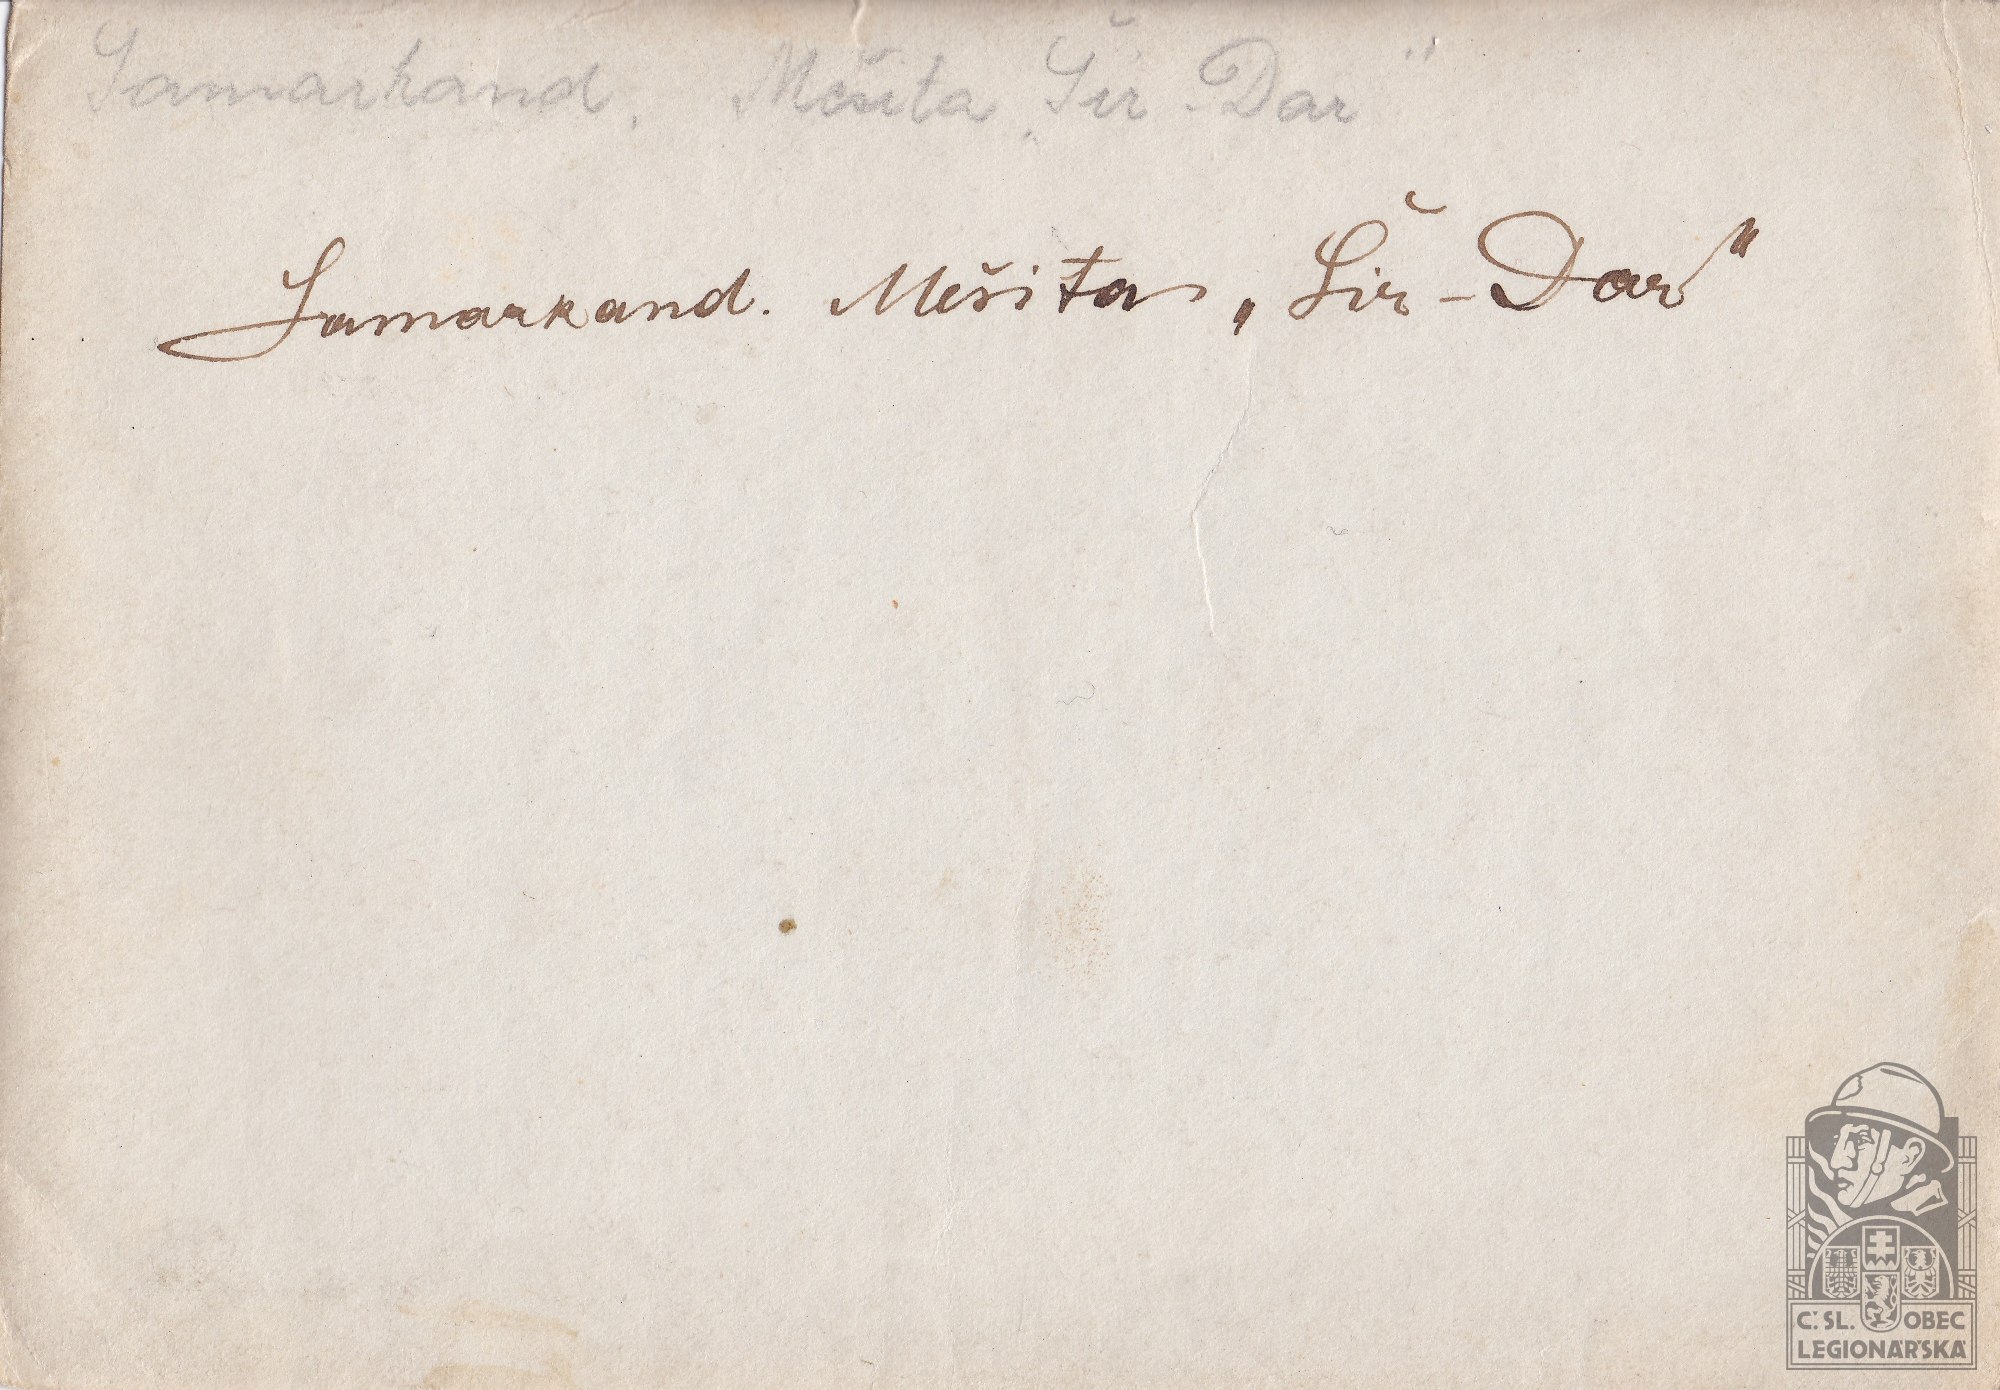 Samarkand. Mešita „Šir-Dar“
Samarkand. Mešita „Šir-Dar“
Č.SL. OBEC
LEGIONÁŘSKÁ